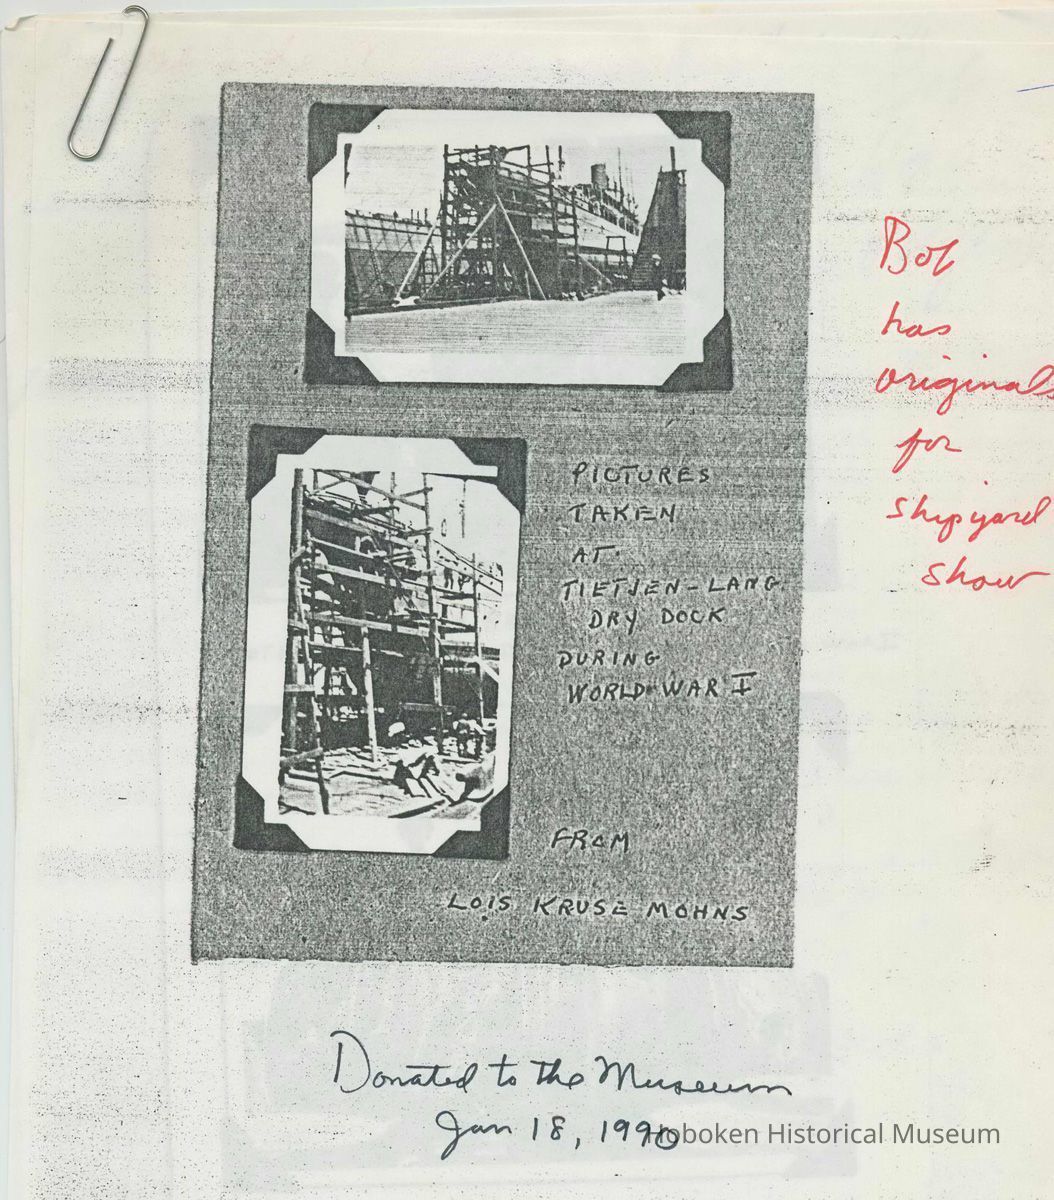 PICTURES
TAKEN
AT
TIETJEN-LANG
DRY DOCK
DURING
WORLD WAR I
FROM
LOIS KRUSE MOHNS
Bob
has
originals
for
shipyard
show
Donated to the Museum
Jan 18, 1990
Hoboken Historical Museum